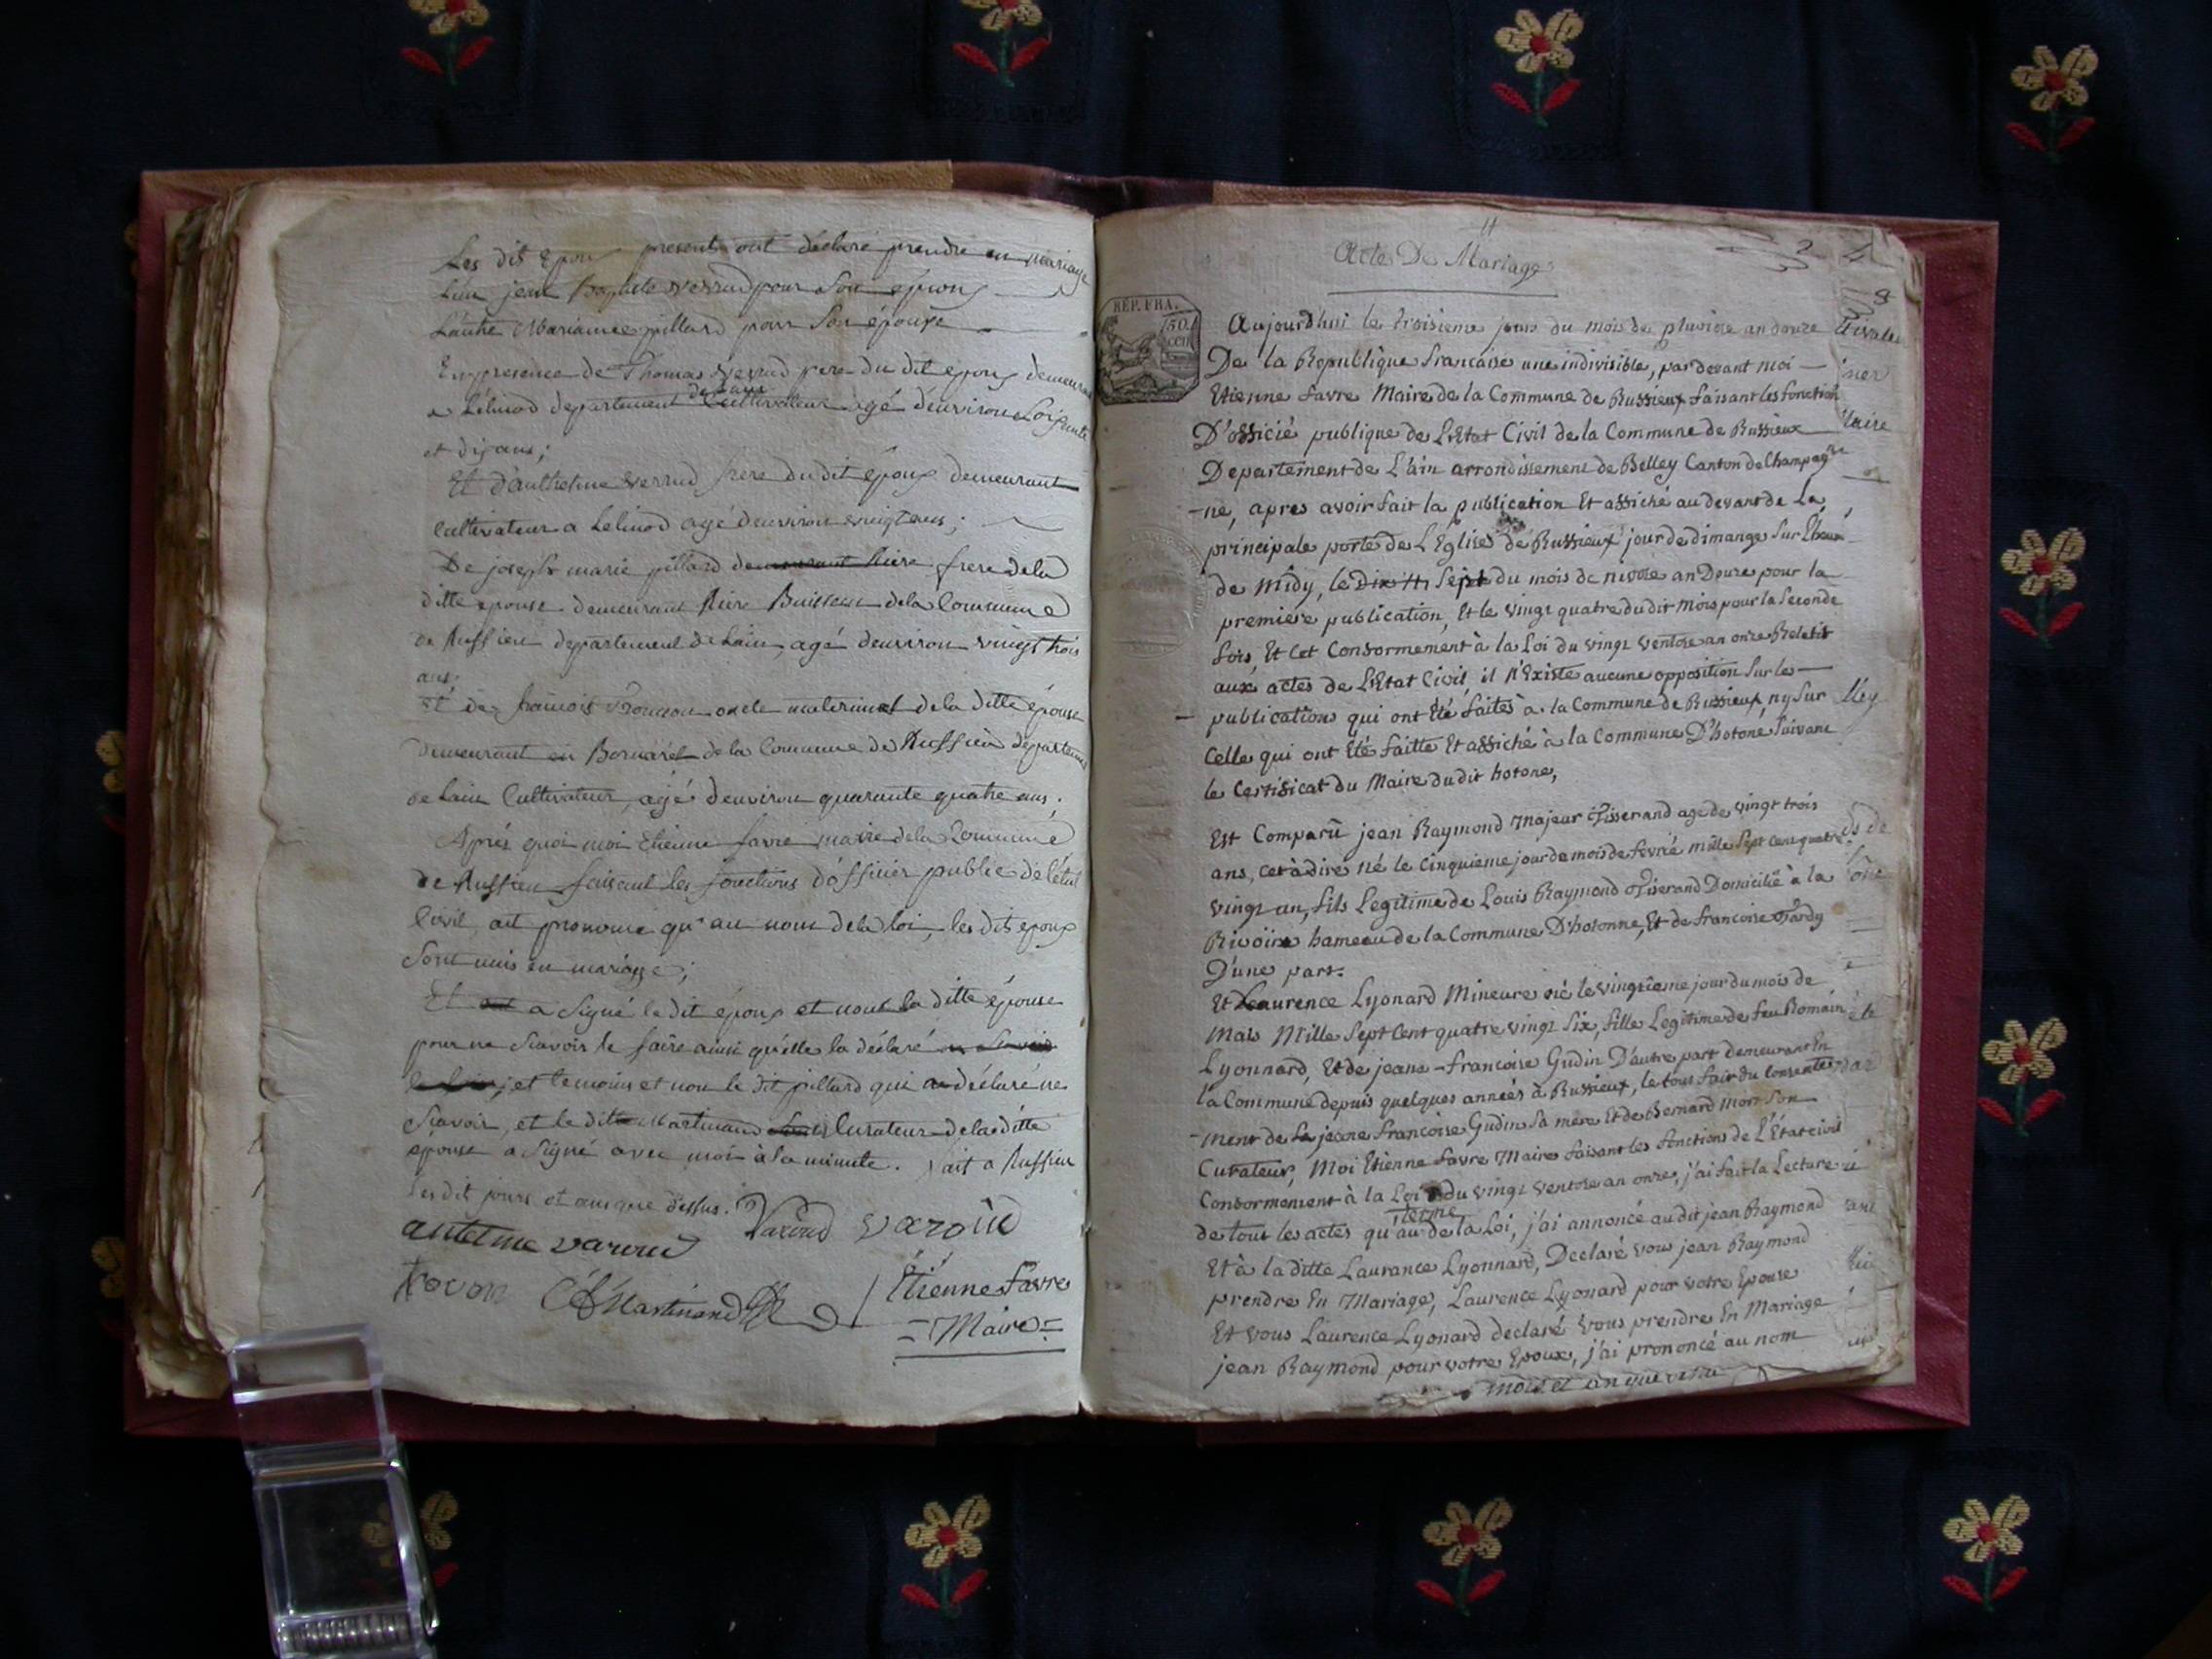 Les dit Epoux presents ont déclaré prendre en mariage
L'un jean Baptiste verrud pour Son epoux
L'autre Marianne pillard pour Son épouse
En presence de Thomas verrud pere du dit epoux demeurant
a Lelinod departement de L'ain Cultivateur agé d'environ Soisante
et dix ans;
Et d'anthelme verrud frere du dit époux demeurant
Cultivateur a Lelinod agé d'environ vingt ans;
De joseph marie pillard frere de la
ditte epouse demeurant Riere Buisson de la Commune
de Russieu departement de Lain, agé d'environ vingt trois
ans.
Et de françois oncle maternel de la ditte épouse
demeurant en Bornarel de la Commune de Russieu departement
de Lain Cultivateur, agé d'environ quarante quatre ans.
Aprés quoi moi Etienne favre maire de la Commune
de Russieu faisant les fonctions d'officier public de l'état
Civil, ait prononcé qu'au nom de la loi, les dit epoux
Sont unis en mariage;
Et a Signé le dit époux et non la ditte épouse
pour ne Scavoir le faire ainsi qu'elle la déclaré
et temoins et non le dit pillard qui a déclaré ne
Scavoir, et le dit Martinand Curateur de la ditte
épouse a Signé avec moi à la minute. fait a Russieu
Les dit jours et an que dessus. Varoud varoud
antelme varoud
Martinand
Etienne favre
= Maire =
11
Acte De Mariage
2 4
8
REP. FRA.
Aujourd'hui le troisieme jour du mois de pluviose an douze
De la Republique francaise une indivisible, par devant moi
Etienne favre Maire de la Commune de Russieux faisant les fonction
D'officié publique de L'Etat Civil de la Commune de Russieux
Departement de L'ain arrondissement de Belley Canton de Champag
-ne, apres avoir fait la publication Et affiché au devant de La
principale porte de L'Eglise de Russieux jour de dimange Sur L'heur
de midy, le Dix Sept du mois de nivose an Douze pour la
premiere publication, Et le vingt quatre du dit mois pour la Seconde
fois, Et Cet Conformement à la Loi du vingt ventose an onze Relatif
aux actes de L'Etat Civil, il n'Existe aucune opposition Sur les
publications qui ont Eté faites à la Commune de Russieux, ny Sur
Celle qui ont Eté faitte Et affiché à la Commune D'hotone Suivant
le Certificat du Maire du dit hotone,
Est Comparû jean Raymond Majeur Tisserand age de vingt trois
ans, Cet à dire né le Cinquieme jour de mois de fevrié mille Sept Cent quatre
vingt un, fils Legitime de Louis Raymond Tiserand Domicilié à la
Rivoire hameau de la Commune D'hotonne, Et de francoise Tardy
D'une part.
Et Laurence Lyonard Mineure né le vingtième jour du mois de
Mars Mille Sept Cent quatre vingt Six, fille Legitime de feu Romain
Lyonnard, Et de jeane-francoise Gudin D'autre part demeurant En
la Commune depuis quelques années à Russieux, le tout fait du Consente
-ment de La jeane francoise Gudin Sa mere Et de Bernard Mort Son
Curateur, Moi Etienne favre Maire faisant les fonctions de L'Etat civil
Conformement à la Loi du vingt ventose an onze, j'ai fait la Lecture
de tout les actes qu'au terme de la Loi, j'ai annoncé au dit jean Raymond
Et à la ditte Laurance Lyonnard, Declaré vous jean Raymond
prendre En Mariage, Laurence Lyonard pour votre Epouse
Et vous Laurence Lyonard declaré vous prendre En Mariage
jean Raymond pour votre Epoux, j'ai prononcé au nom
mois et an que